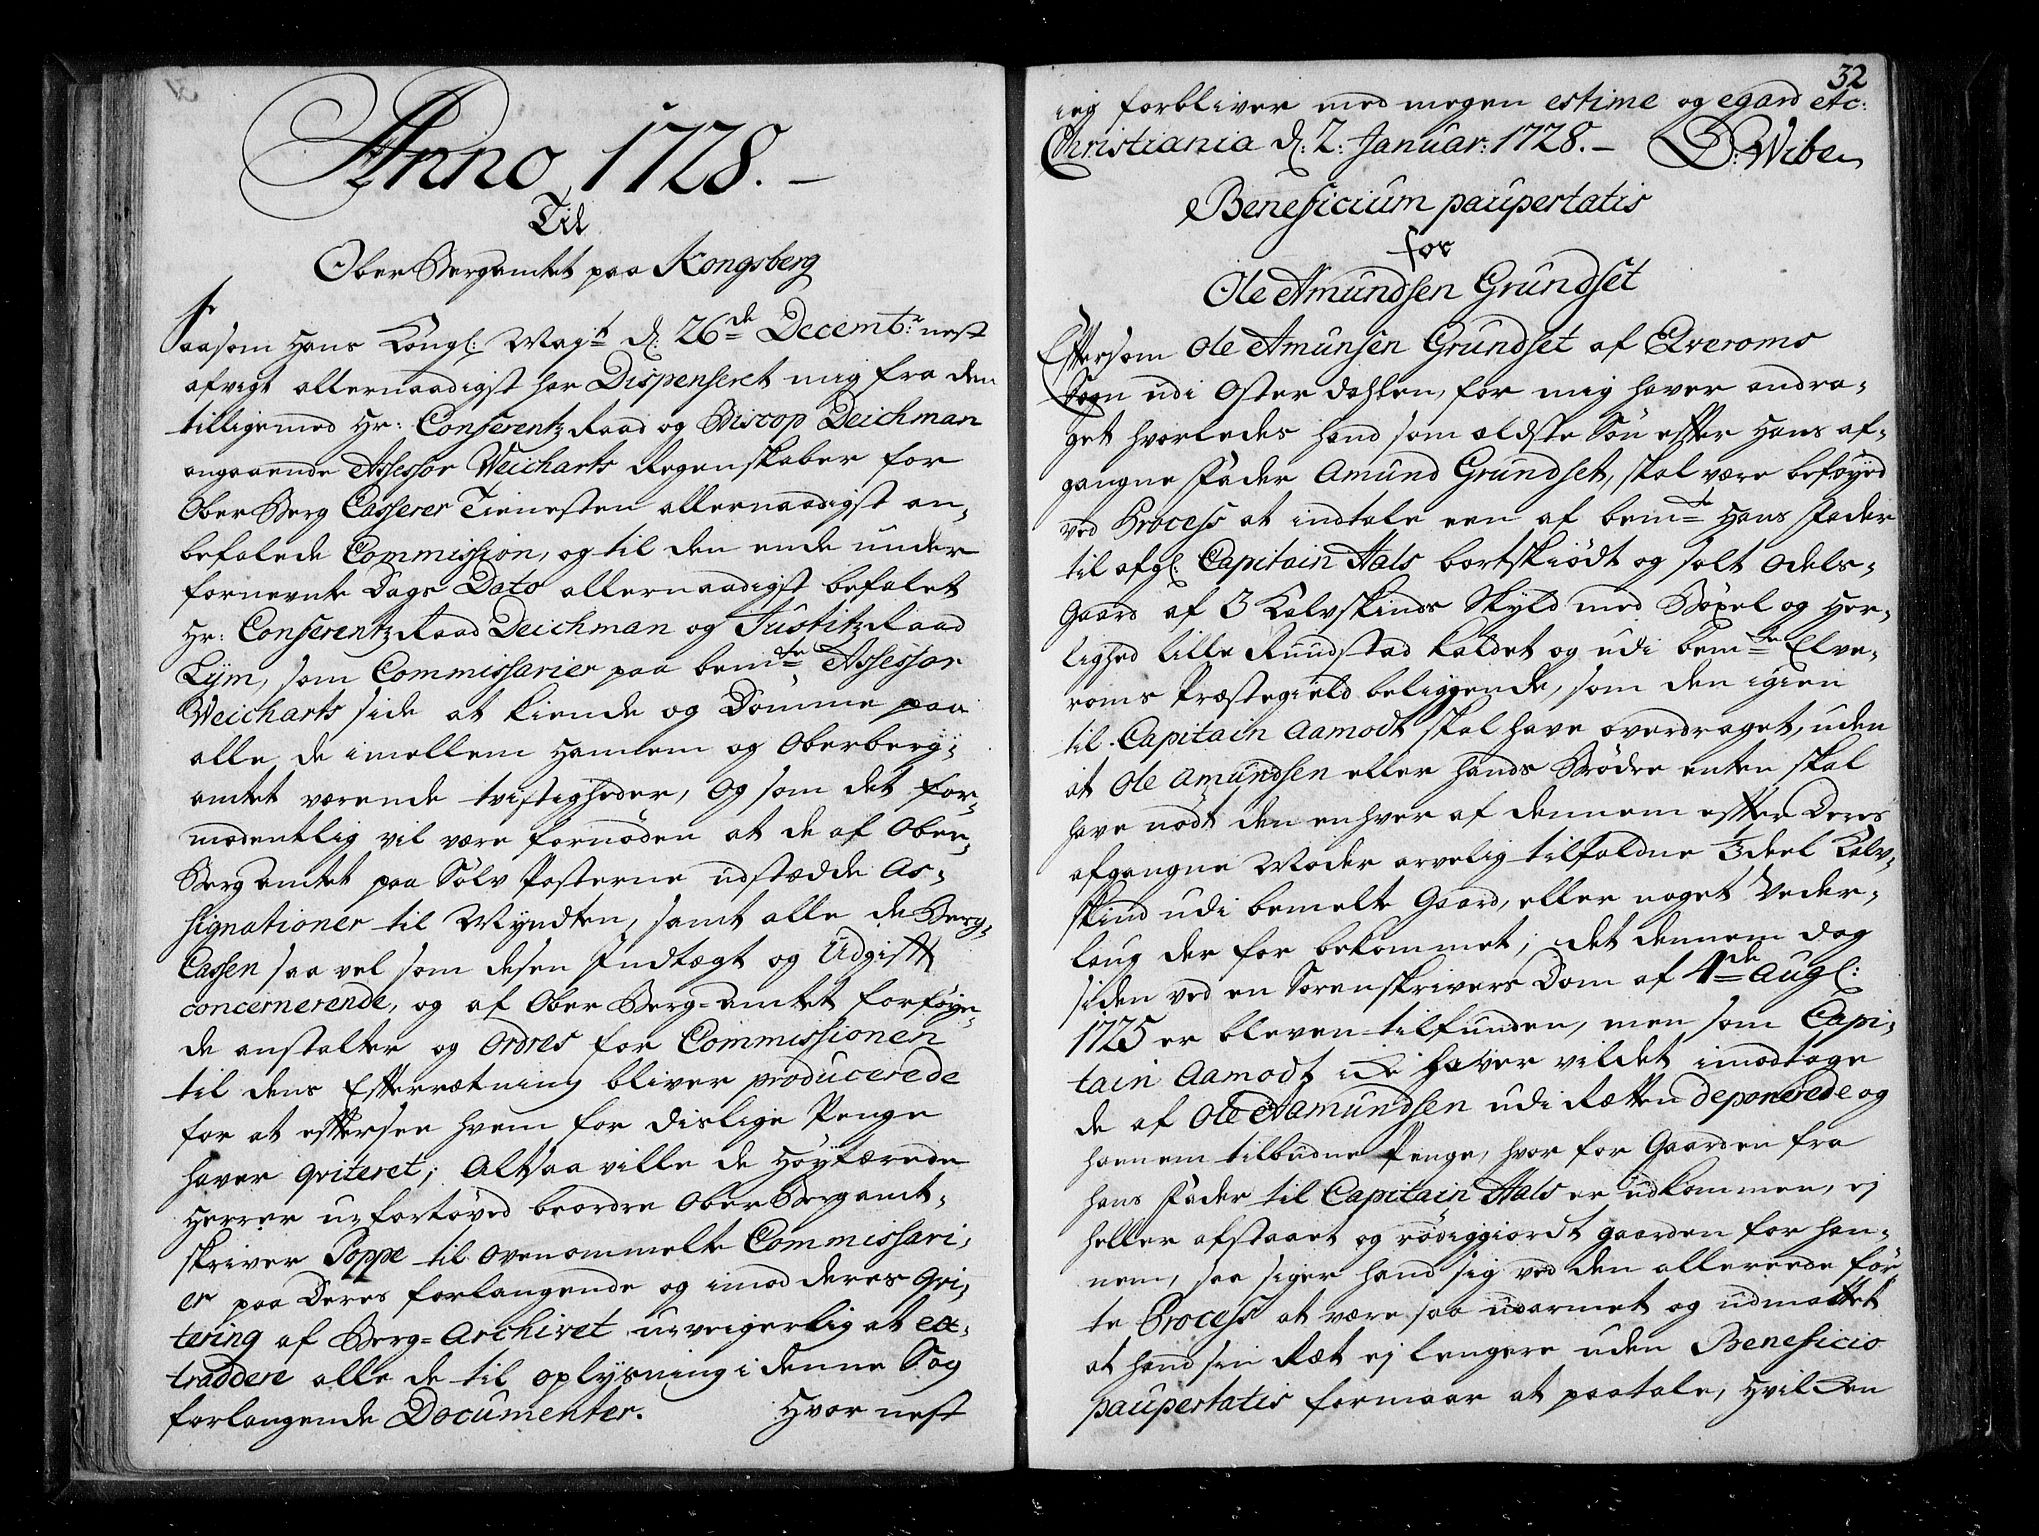 Anno 1728.
Til
Ober Bergamtet paa Kongsberg
Saasom Hans Kongl: May:t d: 26de Decembr: nest
afvigt allernaadigst har Dispenseret mig fra den
tilligemed Hr: Conferentz Raad og Biscop Deichman
angaaende Assessor Weicharts Regenskaber for
Ober Berg Casserer Tienesten allernaadigst an-
befalede Commission, og til den ende under
fornevnte Dags Dato allernaadigst befalet
Hr: Conferentz Raad Deichman og Justitz Raad
Lÿm, som Commissarier paa bemte Assessor
Weicharts side at kiende og Dömme paa
alle de imellem Hannem og Oberberg-
amtet værende tvistigheder, Og som det for-
modentlig vil være fornöden at de af Ober-
Berg Amtet paa Sölv Posterne udstædde As-
signationer til Myndten, samt alle de Berg-
Cassen saa vel som desen Indtægt og Udgift
concernerende, og af Ober Berg-amtet forföye-
de anstalter og Ordres for Commissionen
til dens Efterrætning bliver producerede
for at eftersee hvem for dislige Penge
haver qviteret; Altsaa ville de Höytærede
Herrer u-fortöved beordre Ober Bergamt-
skriver Poppe til ovenommelte Commissari-
er paa Deres forlangende og imod deres Qvi-
tering af Berg-Archivet u-veigerlig at ex-
tradere alle de til oplysning i denne Sag
forlangende Documenter. Hvor nest
32
ieg forbliver med megen estime og egard etc:
Christiania d: 2: Januar: 1728. D: Wibe
Beneficium paupertatis
for
Ole Amundsen Grundset
Eftersom Ole Amunsen Grundset af Elveroms
Sogn udi Osterdahlen, for mig haver andra-
get hvorledes hand som ældste Sön efter Hans af-
gangne Fader Amund Grundset, skal være beföyed
ved Process at indtale een af bemte Hans Fader
til afgl: Capitain Hals bortskiödt og solt Odels-
Gaard af 3 Kalvskinds Skyld med Böxel og Her-
lighed lille Rundstad kaldet og udi bemte Elve-
roms Præstegield beliggende, som den igien
til Capitain Aamodt skal have overdraget, uden
at Ole Amundsen eller hands Brödre enten skal
have nödt den enhver af dennem efter Deres
afgangne Moder arvelig tilfaldne 3deel Kalv-
skind udi bemelte Gaard, eller noget Veder-
laug der for bekommet; det dennem dog
siden ved en Sorenskrivers Dom af 4de Aug:
1725 er bleven tilfunden, men som Capi-
tain Aamodt icke haver vildet imodtage
de af Ole Aamundsen udi Rætten deponerede og
hannem tilbudne Penge, hvor for Gaarden fra
hans Fader til Capitain Hals er udkommen, ej
heller afstaaet og rödiggiordt gaarden for han-
nem, saa siger hand sig ved den allereede för
te Process at være saa udarmet og udmattet
at hand sin Ræt ej lengere uden Beneficio
paupertatis formaar at paatale, Hvilcken